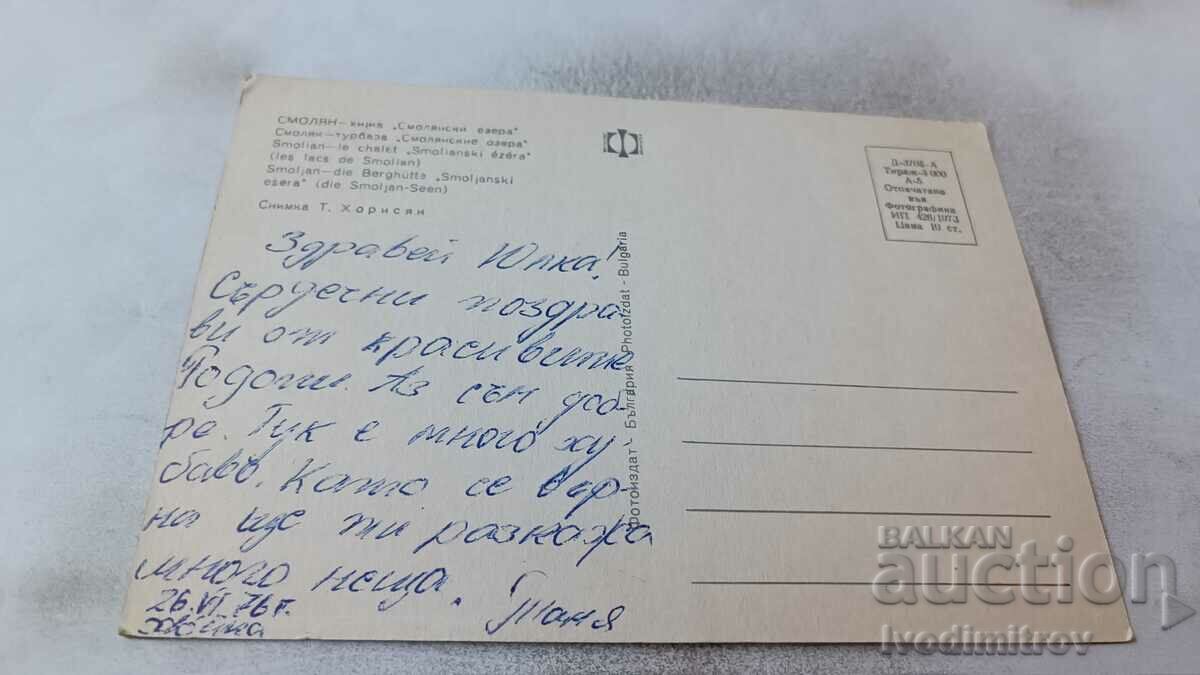 СМОЛЯН—хижа „Смолянски езера"
Смолян—турбаза „Смолянские озера"
Smolian—le chalet „Smolianski ézéra"
(les lacs de Smolian)
Smoljan—die Berghütte „Smoljanski
esera" (die Smoljan-Seen)
Снимка Т. Хорисян
Здравей Юлка!
Сърдечни поздра-
ви от красивите
Родопи. Аз съм доб-
ре. Тук е много ху
баво. Като се вър-
на ще ти разкажа
много неща.
26.VI.76 г.
Таня
Фотоиздат - България Photoizdat - Bulgaria
Тираж-3 000
А-5
Отпечатана
във
Фотографика
ИП 426/1973
Цена 10 ст.
BALKAN
auction
Ivodimitrov